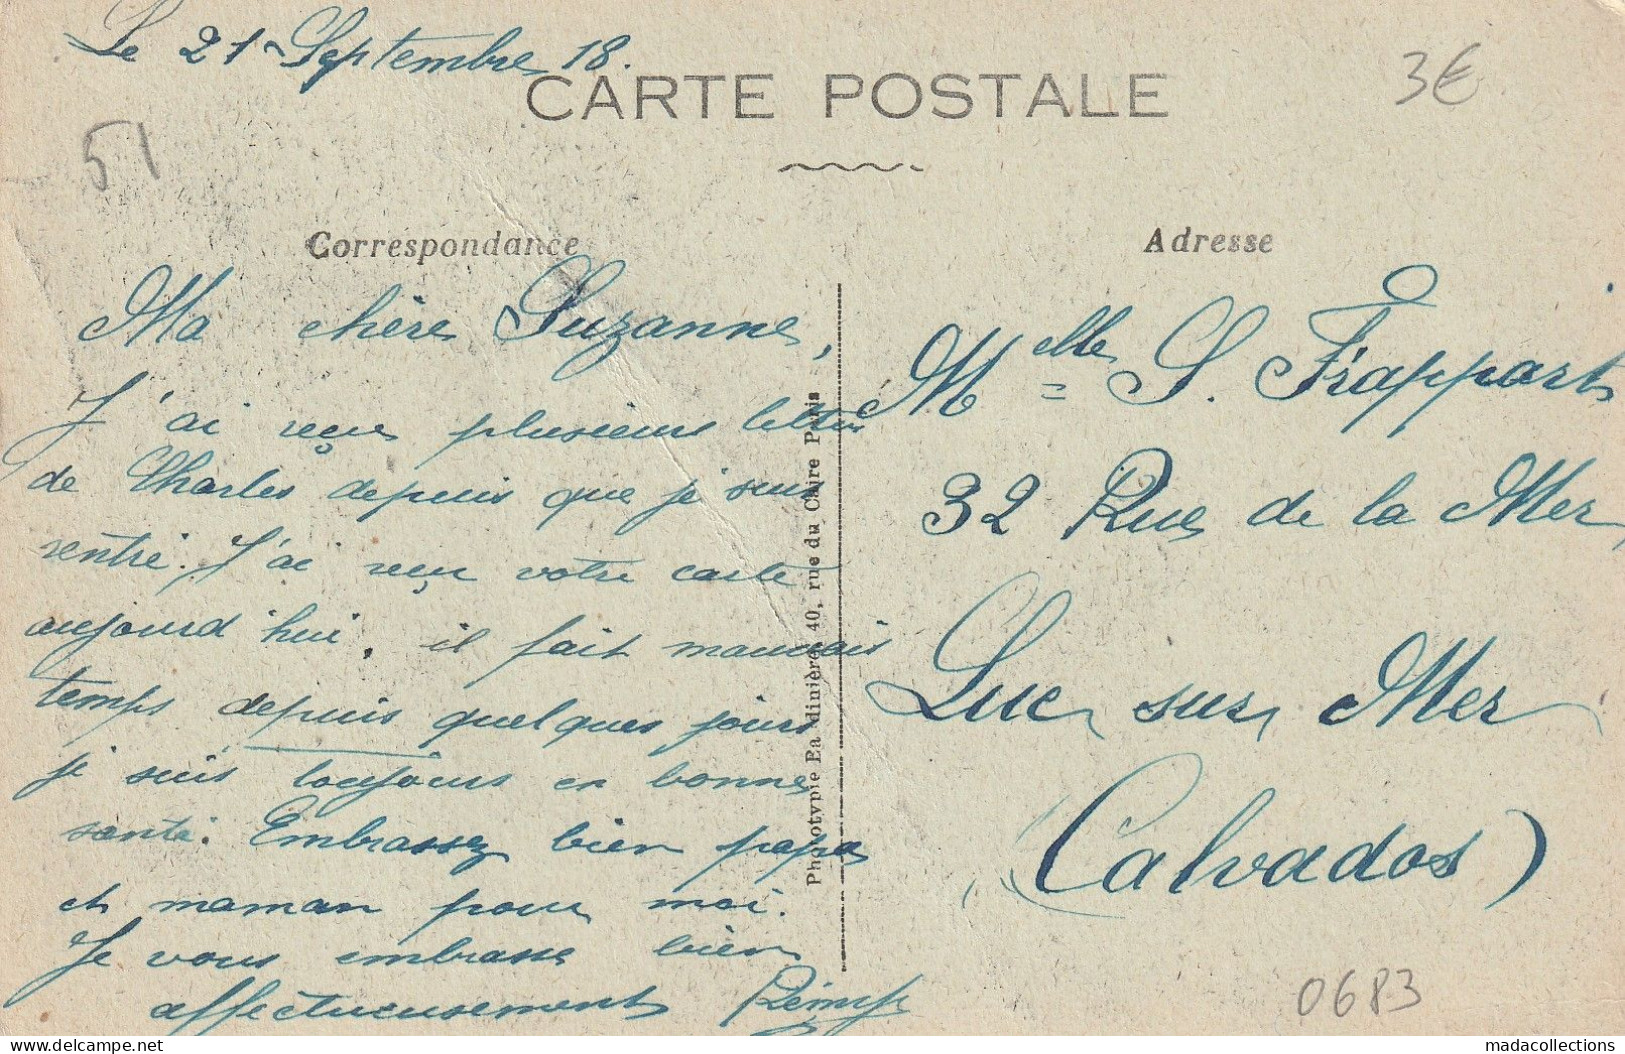 Le 21 Septembre 18.
CARTE POSTALE
3€
51
Correspondance
Ma chère Suzanne,
J'ai reçu plusieurs lettres
de Charles depuis que je suis
rentré. J'ai reçu votre carte
aujourd'hui, il fait mauvais
temps depuis quelques jours
je suis toujours en bonne
santé. Embrassez bien papa
et maman pour moi.
Je vous embrasse bien
affectueusement Rémy
Phototypie Baudinière 40, rue du Caire Paris
Adresse
Melle S. Frappart
32 Rue de la Mer
Luc sur Mer
(Calvados)
0683
www.madacollections